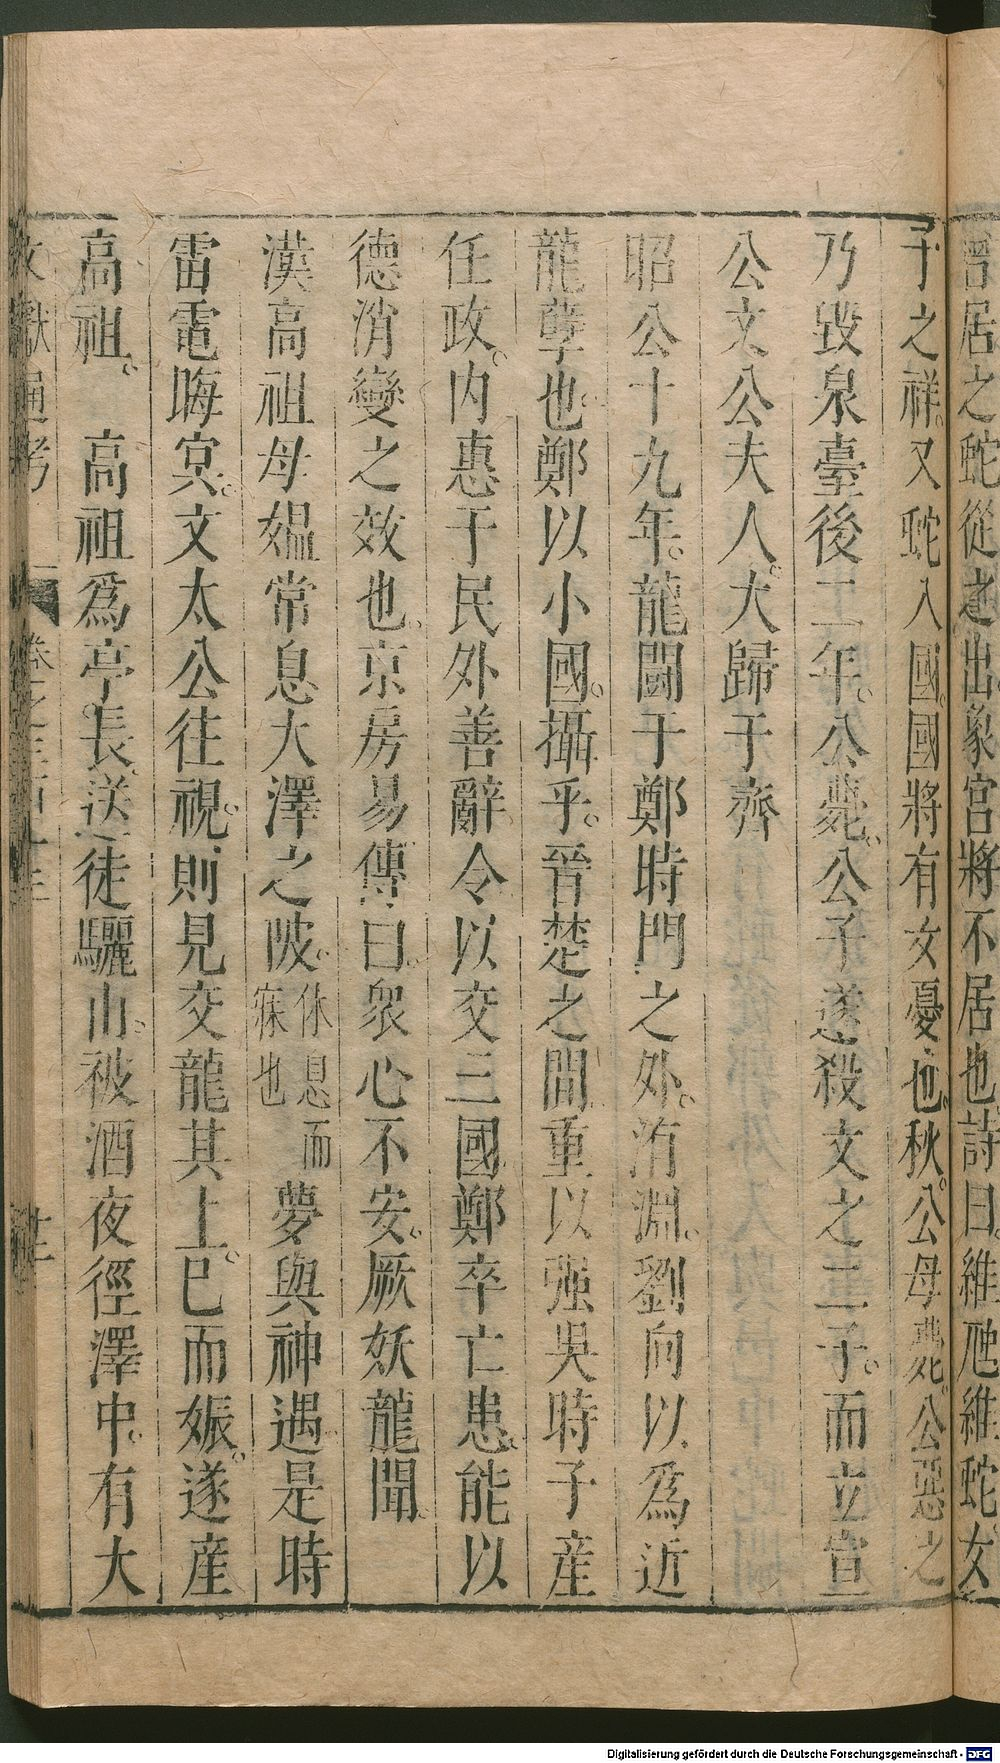 居之蛇從之出象宮將不居也詩曰維虺維蛇女
子之祥又蛇入國國將有女憂也秋公母薨公惡之
乃毀泉臺後二年公薨公子遂殺文之二子而立宣
公文公夫人大歸于齊
昭公十九年龍鬭于鄭時門之外洧淵劉向以爲近
龍孽也鄭以小國攝乎晉楚之間重以强吳時子產
任政内惠于民外善辭令以交三國鄭卒亡患能以
德消變之效也京房易傳曰衆心不安厥妖龍鬭
漢高祖母媼常息大澤之陂休息而寐也夢與神遇是時
雷電晦冥文太公往視則見交龍其上已而娠遂產
高祖 高祖爲亭長送徒驪山被酒夜徑澤中有大
文獻通考 卷之三百十三
Digitalisierung gefördert durch die Deutsche Forschungsgemeinschaft - DFG